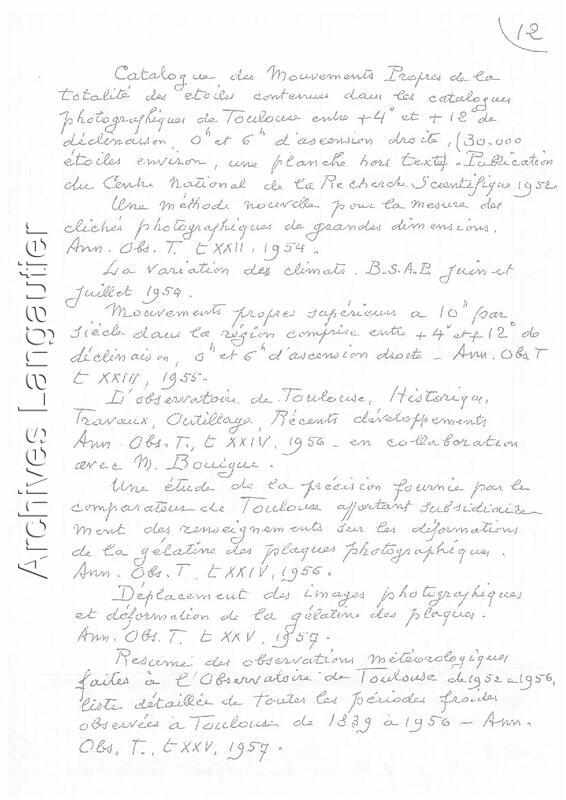 12
Catalogue des Mouvements Propres de la
totalité des etoiles contenues dans les catalogues
photographiques de Toulouse entre +4° et +12° de
déclinaison, 0h et 6h d'ascension droite, (30.000
étoiles environ, une planche hors texte). Publication
du Centre National de la Recherche Scientifique 1952.
Une méthode nouvelle pour la mesure des
clichés photographiques de grandes dimensions.
Ann. Obs. T. t XXII, 1954.
La variation des climats. B.S.A.P. Juin et
Juillet 1954.
Mouvements propres supérieurs a 10" par
siècle dans la région comprise entre +4° et +12° de
déclinaison, 0h et 6h d'ascension droite - Ann. Obs T
t XXIII, 1955.
L'observatoire de Toulouse, Historique,
Travaux, Outillage, Récents développements
Ann. Obs. T., t XXIV, 1956 - en collaboration
avec M. Bouigue.
Une étude de la précision fournie par le
comparateur de Toulouse apportant subsidiaire-
ment des renseignements sur les déformations
de la gélatine des plaques photographiques.
Ann. Obs. T. t XXIV, 1956.
Déplacement des images photographiques
et déformation de la gélatine des plaques.
Ann. Obs. T. t XXV, 1957.
Resumé des observations météorologiques
faites à l'Observatoire de Toulouse de 1952 a 1956,
liste détaillée de toutes les périodes froides
observées à Toulouse de 1839 à 1956 - Ann.
Obs. T., t XXV, 1957.
Archives Langautier